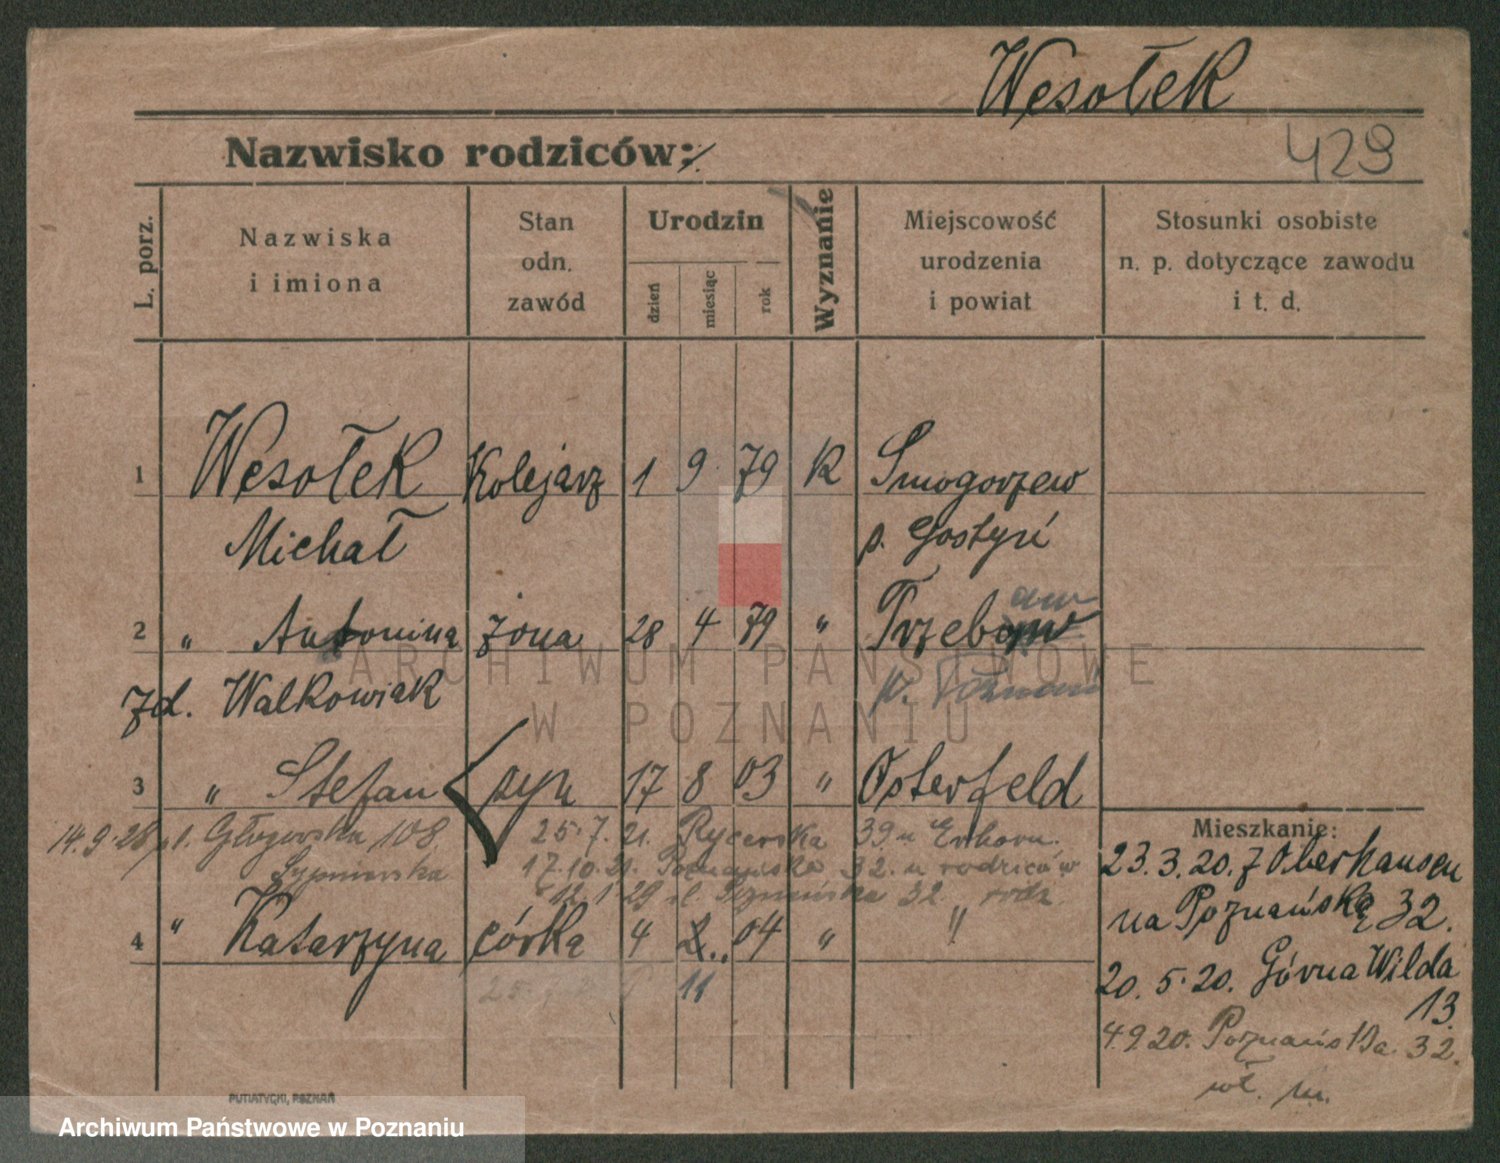 Wesołek
Nazwisko rodziców:
429
L. porz.
Nazwiska
i imiona
Stan
odn.
zawód
Urodzin
dzień
miesiąc
rok
Wyznanie
Miejscowość
urodzenia
i powiat
Stosunki osobiste
n. p. dotyczące zawodu
i t. d.
1 Wesołek Kolejarz 1 9 79 K Smogorzew
Michał p. Gostyń
am
2 " Antonina żona 28 4 79 " Trzebow
zd. Walkowiak p. Poznań
3 " Stefan syn 17 8 03 " Osterfeld
14.9.28 pl. Głogowska 108. 25.7.21. Rycerska 39 u
17.10.21. Poznańska 32. u rodziców
12.1.29 Poznańska 32. rodz.
4 " Katarzyna córka 4 2.. 04 " "
11
Mieszkanie:
23.3.20. z Oberhausen
na Poznańską 32.
20.5.20. Górna Wilda
13.
4.9.20. Poznańska 32.
PUTIATYCKI, POZNAŃ
ARCHIWUM PAŃSTWOWE
W POZNANIU
Archiwum Państwowe w Poznaniu